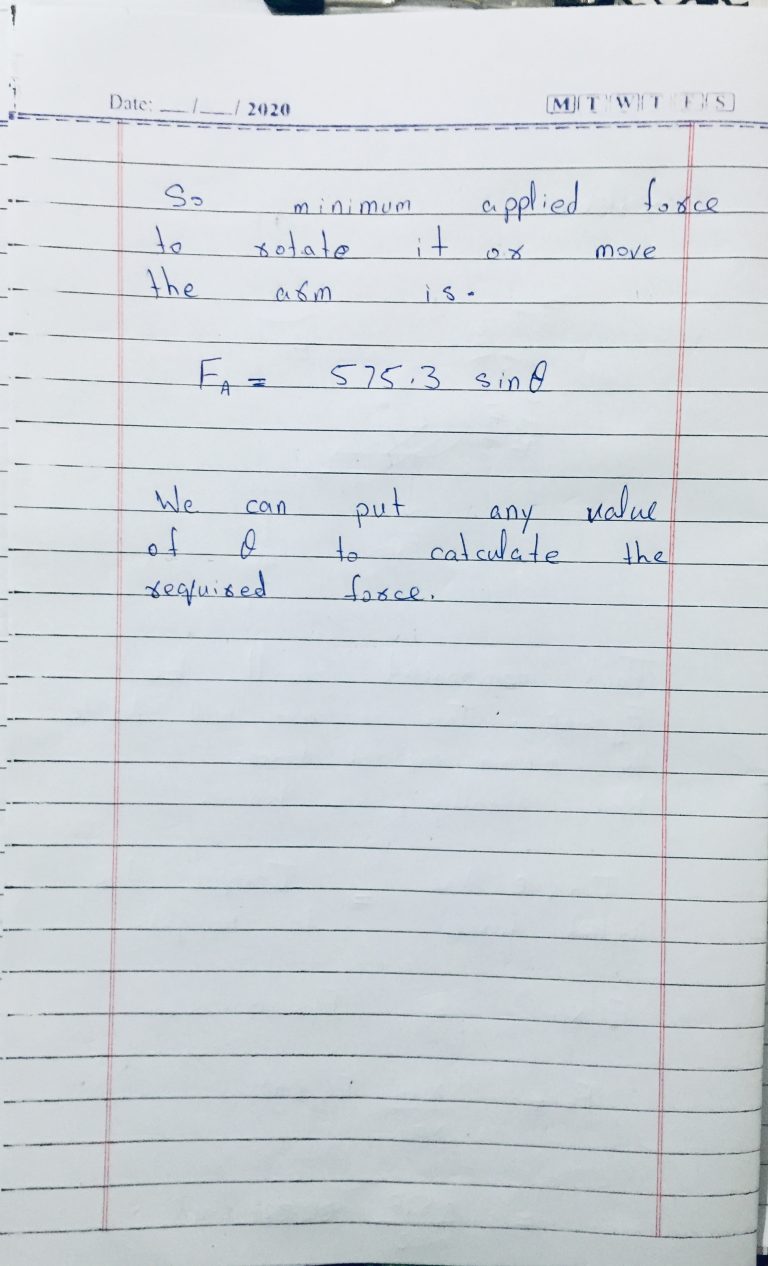 Date: __/__/ 2020 M T W T F S
So minimum applied force
to rotate it or move
the arm is.
F_A = 575.3 sinθ
We can put any value
of θ to calculate the
required force.